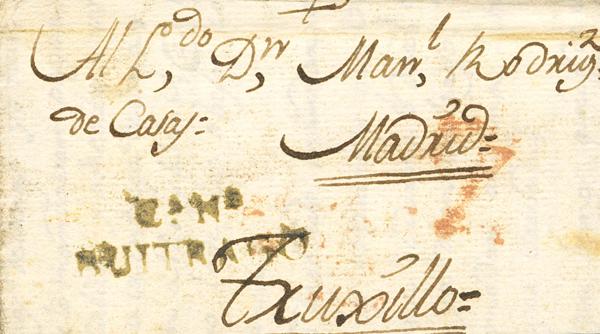 Al L.do D.n Man.l Rodrig.z
de Casas=
Madrid=
E. N.
BUITRAGO
Truxillo=